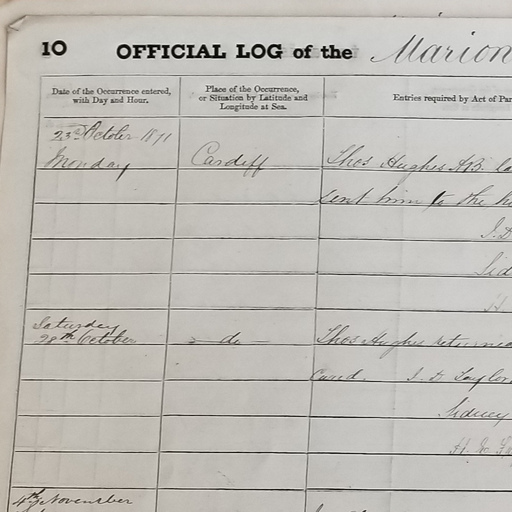 10 OFFICIAL LOG of the Marion
Date of the Occurrence entered, with Day and Hour.
Place of the Occurrence, or Situation by Latitude and Longitude at Sea.
Entries required by Act of Par
23rd October 1871
Monday
Cardiff
Thos Hughes AB la
sent him to the h
J. D
Sid
H
Saturday
28th October
do
Thos Hughes returned
Cured. J. D Taylor
Sidney
H. W
4th November